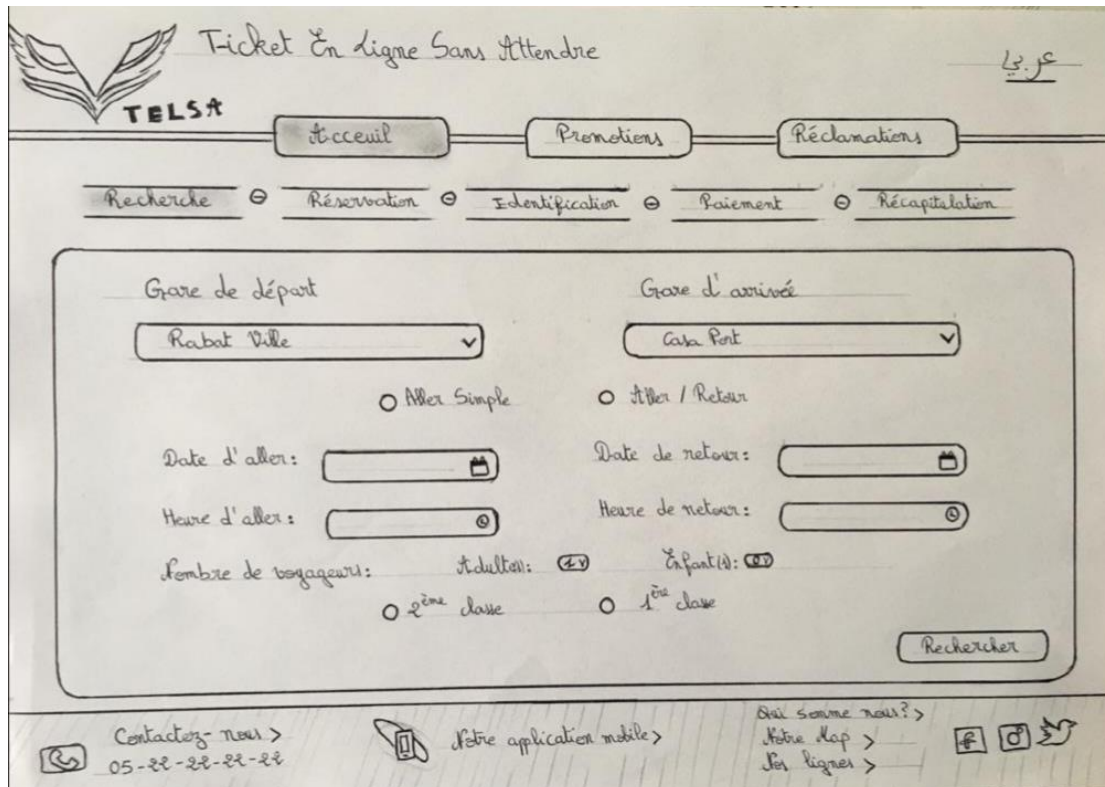 Ticket En Ligne Sans Attendre
عربي
TELSA
Acceuil Promotions Réclamations
Recherche Réservation Identification Paiement Récapitulation
Gare de départ Gare d'arrivée
Rabat Ville Casa Port
Aller Simple Aller / Retour
Date d'aller: Date de retour:
Heure d'aller: Heure de retour:
Nombre de voyageurs: Adulte(s): 1 Enfant(s): 0
2ème classe 1ère classe
Rechercher
Contactez-nous >
05-22-22-22-22
Notre application mobile >
Qui somme nous? >
Notre Map >
Nos lignes >
f